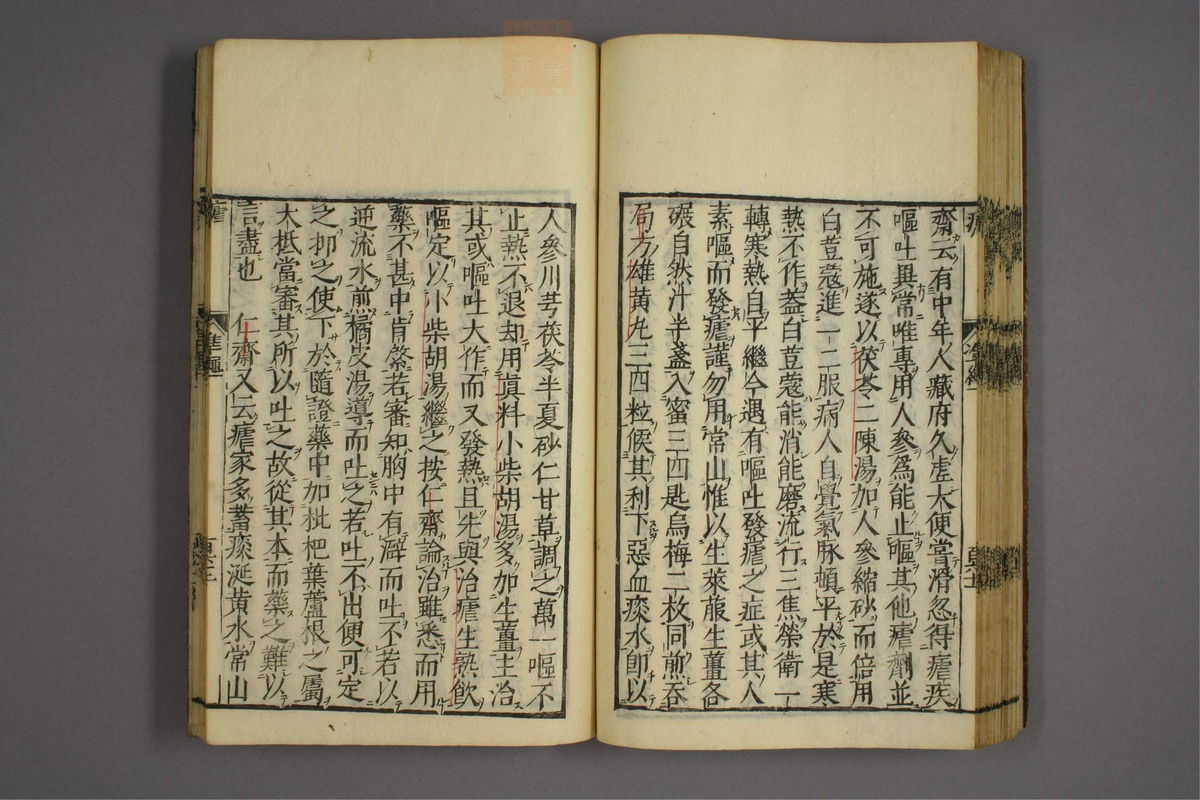 齋云有中年人臟府久虛大便嘗滑忽得瘧疾
嘔吐異常唯專用人參爲能止嘔其他瘧劑並
不可施遂以茯苓二陳湯加人參縮砂而倍用
白荳蔻進一二服病人自覺氣脉頓平於是寒
熱不作葢白荳蔻能消能磨流行三焦榮衛一
轉寒熱自平繼今遇有嘔吐發瘧之症或其人
素嘔而發瘧謹勿用常山惟以生萊菔生薑各
碾自然汁半盞入蜜三四匙烏梅二枚同煎吞
局方雄黃丸三四粒候其利下惡血痰水卽以
人參川芎茯苓半夏砂仁甘草調之萬一嘔不
止熱不退却用眞料小柴胡湯多加生薑主治
其或嘔吐大作而又發熱且先與治瘧生熟飲
嘔定以小柴胡湯繼之按仁齋論治雖悉而用
藥不甚中肯綮若審知胸中有澼而吐不若以
逆流水煎橘皮湯導而吐之若吐不出便可定
之抑之使下於隨證藥中加枇杷葉蘆根之屬
大抵當審其所以吐之故從其本而藥之難以
言盡也 仁齋又云瘧家多蓄痰涎黃水常山
瘧
準繩